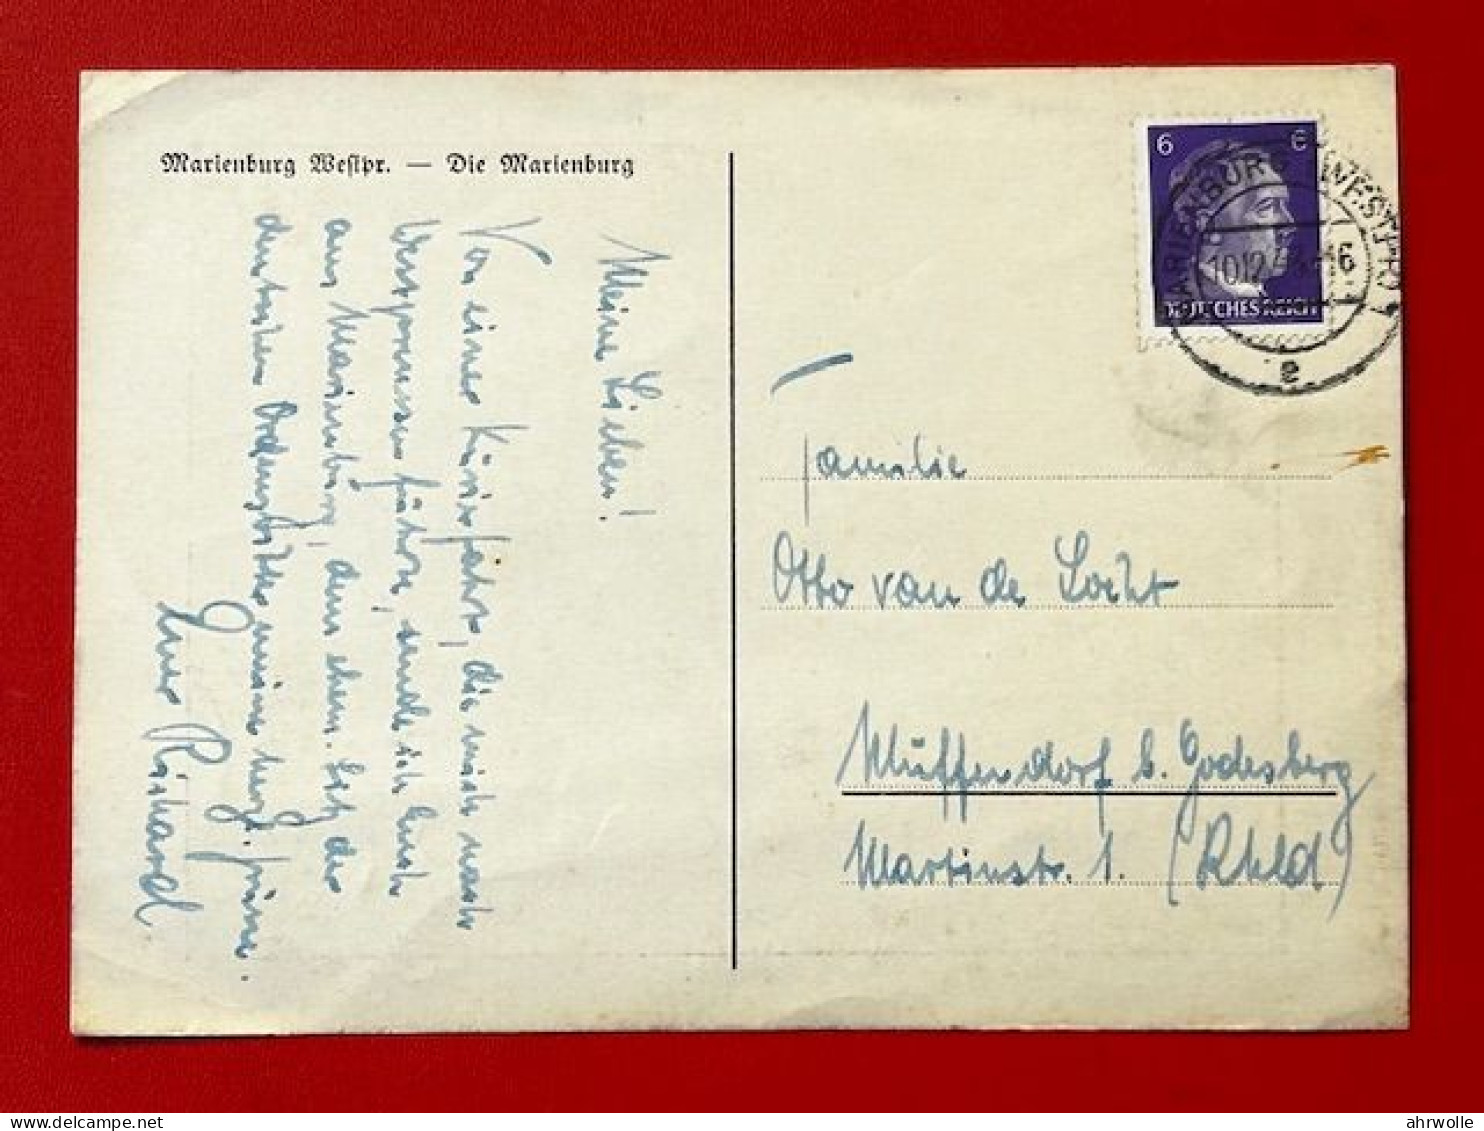 Marienburg Westpr. — Die Marienburg
Meine Lieben!
Von einer Kurierfahrt, die mich nach
Westpreussen führte, sende ich Euch
aus Marienburg, dem ehem. Sitz der
deutschen Ordensritter meine herzl. Grüsse.
Euer Richard
6 6
DEUTSCHES REICH
MARIENBURG (WESTPR) 1
10.12.4 16
e
Familie
Otto van de Locht
Muffendorf b. Godesberg
Martinstr. 1. (Rhld)
ahrwolle